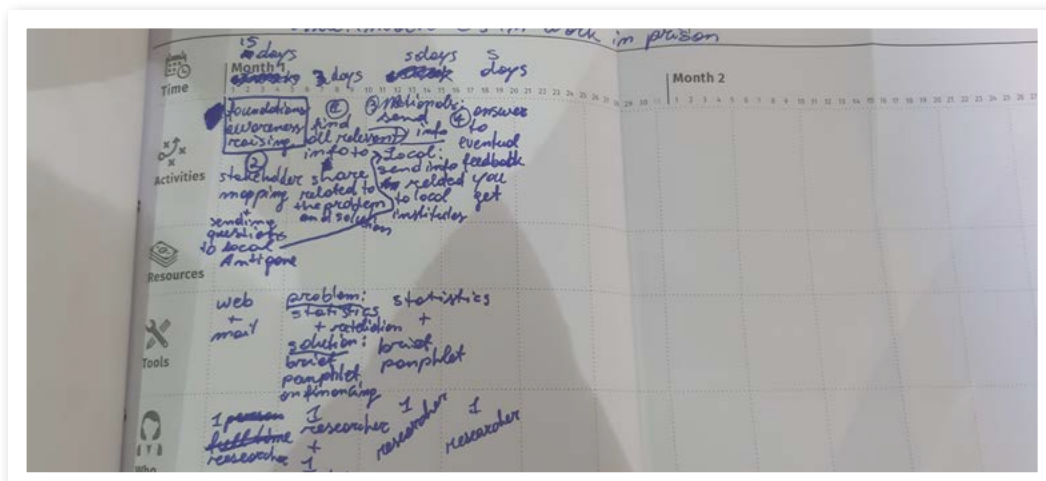 work in prison
15 days
5 days
5 days
Month 1
3 days
Month 2
Time
1 2 3 4 5 6 7 8 9 10 11 12 13 14 15 16 17 18 19 20 21 22 23 24 25 26 27 28 29 30
1 2 3 4 5 6 7 8 9 10 11 12 13 14 15 16 17 18 19 20 21 22 23 24 25 26 27
Activities
foundations
awareness
raising
②
stakeholder
mapping
+
sending
questions
to local
Antigone
find
all relevant
info to
share
related to
the problem
and solution
③
send info
Local:
send info
related
to local
institutes
④ answer
to
eventual
feedback
you
get
Resources
Tools
web
+
mail
problem:
statistics
+
solution:
brief
pamphlet
on financing
statistics
+
brief
pamphlet
Who
1 person
full time
researcher
1
researcher
+
1
1
researcher
1
researcher